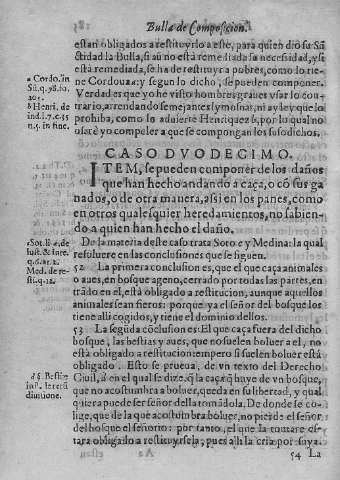 Bulla de Composicion.
estan obligados a restituyrlo a este, para quien dio su Sã
ctidad la Bulla, si aũ no està remediada la necesidad, y si
està remediada, se ha de restituyr a pobres, como lo tie-
a Cordo. in
ne Cordoua a: y segun lo dicho, se pueden componer.
Verdad es que yo he visto hombres graues vsar lo con-
b Henri. de
trario, arrendando semejantes limosnas, ni ay ley que lo
ind. l. 7. c. 35
prohiba, como lo aduierte Henriquez b, por lo qual no
n. 5. in fine.
osarè yo compeler a que se compongan los susodichos.
CASO DVODECIMO.
ITEM, se pueden componer de los daños
que han hecho andando a caça, o cõ sus ga
nados, o de otra manera, assi en los panes, como
en otros qualesquier heredamientos, no sabien-
do a quien han hecho el daño.
c Sot. li. 4. de
De la materia deste caso trata Soto c y Medina: la qual
iust. & iure.
resoluere en las conclusiones que se siguen.
q. 6. ar. 2.
52 La primera conclusion es, que el que caça animales
Med. de re-
o aues, en bosque ageno, cerrado por todas las partes, en
sti. q. 12.
trãdo en el, està obligado a restitucion, aunque aquellos
animales sean fieros: porque ya el señor del bosque los
tiene alli cogidos, y tiene el dominio dellos.
53 La segũda cõclusion es: El que caça fuera del dicho
bosque, las bestias y aues, que no suelen boluer a el, no
està obligado a restitucion: empero si suelen boluer està
obligado. Esto se prueua, de vn texto del Derecho
Ciuil, d en el qual se dize, q̃ la caça q̃ huye de vn bosque,
que no acostumbra a boluer, queda en su libertad, y qual
quiera puede ser señor della tomãdola. De donde se co-
lige, que de la que acostumbra boluer, no pierde el señor
del bosque el señorio: por tanto, el que la tomare es-
tara obligado a restituyrsela, pues alli la cria por suya.
54 La